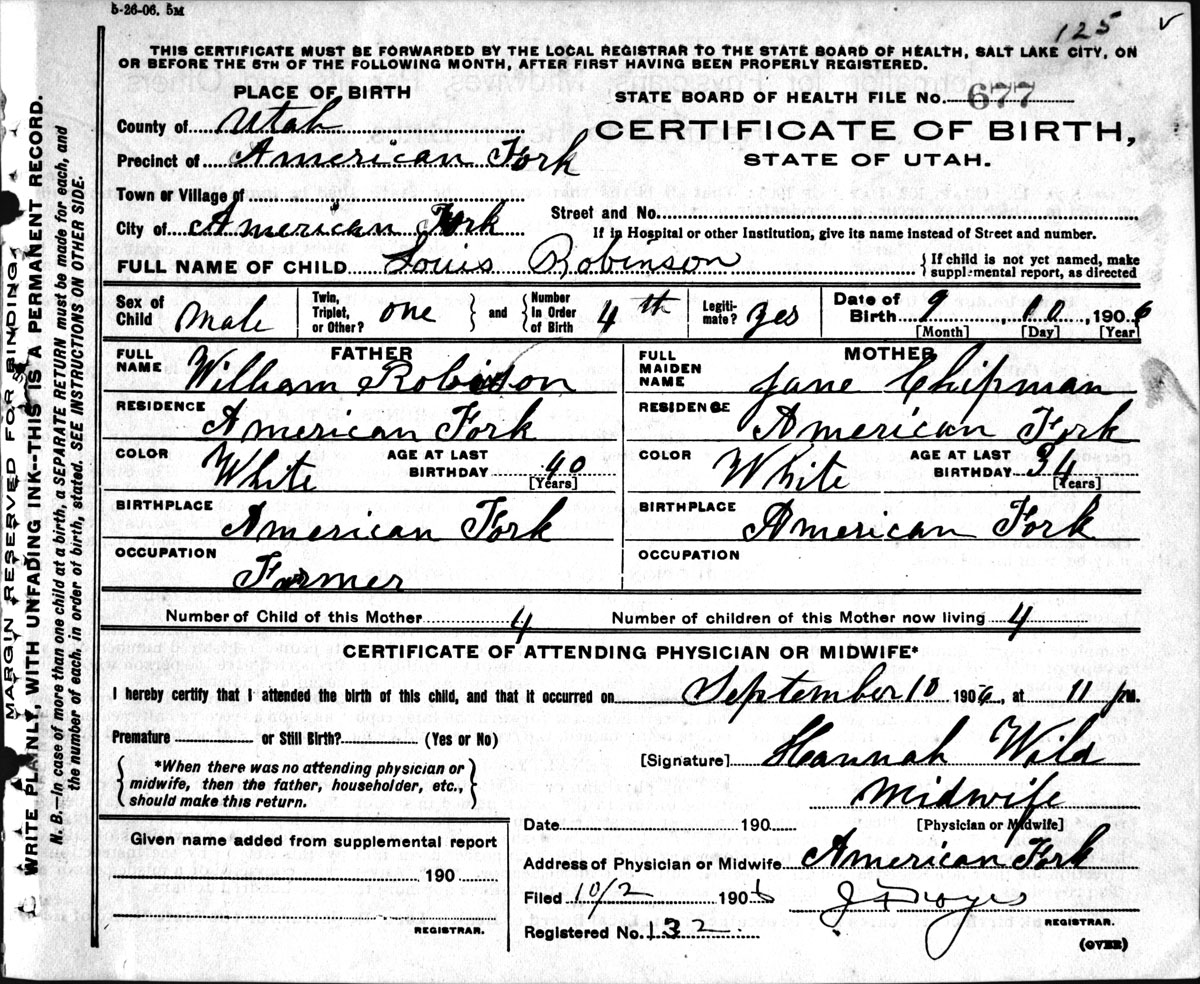 5-26-06. 5M
125 v
THIS CERTIFICATE MUST BE FORWARDED BY THE LOCAL REGISTRAR TO THE STATE BOARD OF HEALTH, SALT LAKE CITY, ON
OR BEFORE THE 5TH OF THE FOLLOWING MONTH, AFTER FIRST HAVING BEEN PROPERLY REGISTERED.
PLACE OF BIRTH
STATE BOARD OF HEALTH FILE No. 677
County of Utah
CERTIFICATE OF BIRTH,
Precinct of American Fork
STATE OF UTAH.
Town or Village of
Street and No.
City of American Fork
If in Hospital or other Institution, give its name instead of Street and number.
FULL NAME OF CHILD Louis Robinson
{ If child is not yet named, make
supplemental report, as directed
Sex of Child Male
Twin, Triplet, or Other? one } and { Number In Order of Birth 4th
Legiti-mate? yes
Date of Birth 9, 10, 1906
[Month] [Day] [Year]
FATHER
FULL NAME William Robinson
RESIDENCE American Fork
COLOR White AGE AT LAST BIRTHDAY 40 [Years]
BIRTHPLACE American Fork
OCCUPATION Farmer
MOTHER
FULL MAIDEN NAME Jane Chipman
RESIDENCE American Fork
COLOR White AGE AT LAST BIRTHDAY 34 [Years]
BIRTHPLACE American Fork
OCCUPATION
Number of Child of this Mother 4 Number of children of this Mother now living 4
CERTIFICATE OF ATTENDING PHYSICIAN OR MIDWIFE*
I hereby certify that I attended the birth of this child, and that it occurred on September 10 1906, at 11 pM.
Premature or Still Birth? (Yes or No)
[Signature] Hannah Wild
{ *When there was no attending physician or
midwife, then the father, householder, etc.,
should make this return. }
Midwife
[Physician or Midwife]
Date 190
Address of Physician or Midwife American Fork
Filed 10/2 1906
REGISTRAR.
Registered No. 132
(OVER)
Given name added from supplemental report
190
REGISTRAR.
MARGIN RESERVED FOR BINDING
WRITE PLAINLY, WITH UNFADING INK--THIS IS A PERMANENT RECORD.
N. B.—In case of more than one child at a birth, a SEPARATE RETURN must be made for each, and
the number of each, in order of birth, stated. SEE INSTRUCTIONS ON OTHER SIDE.